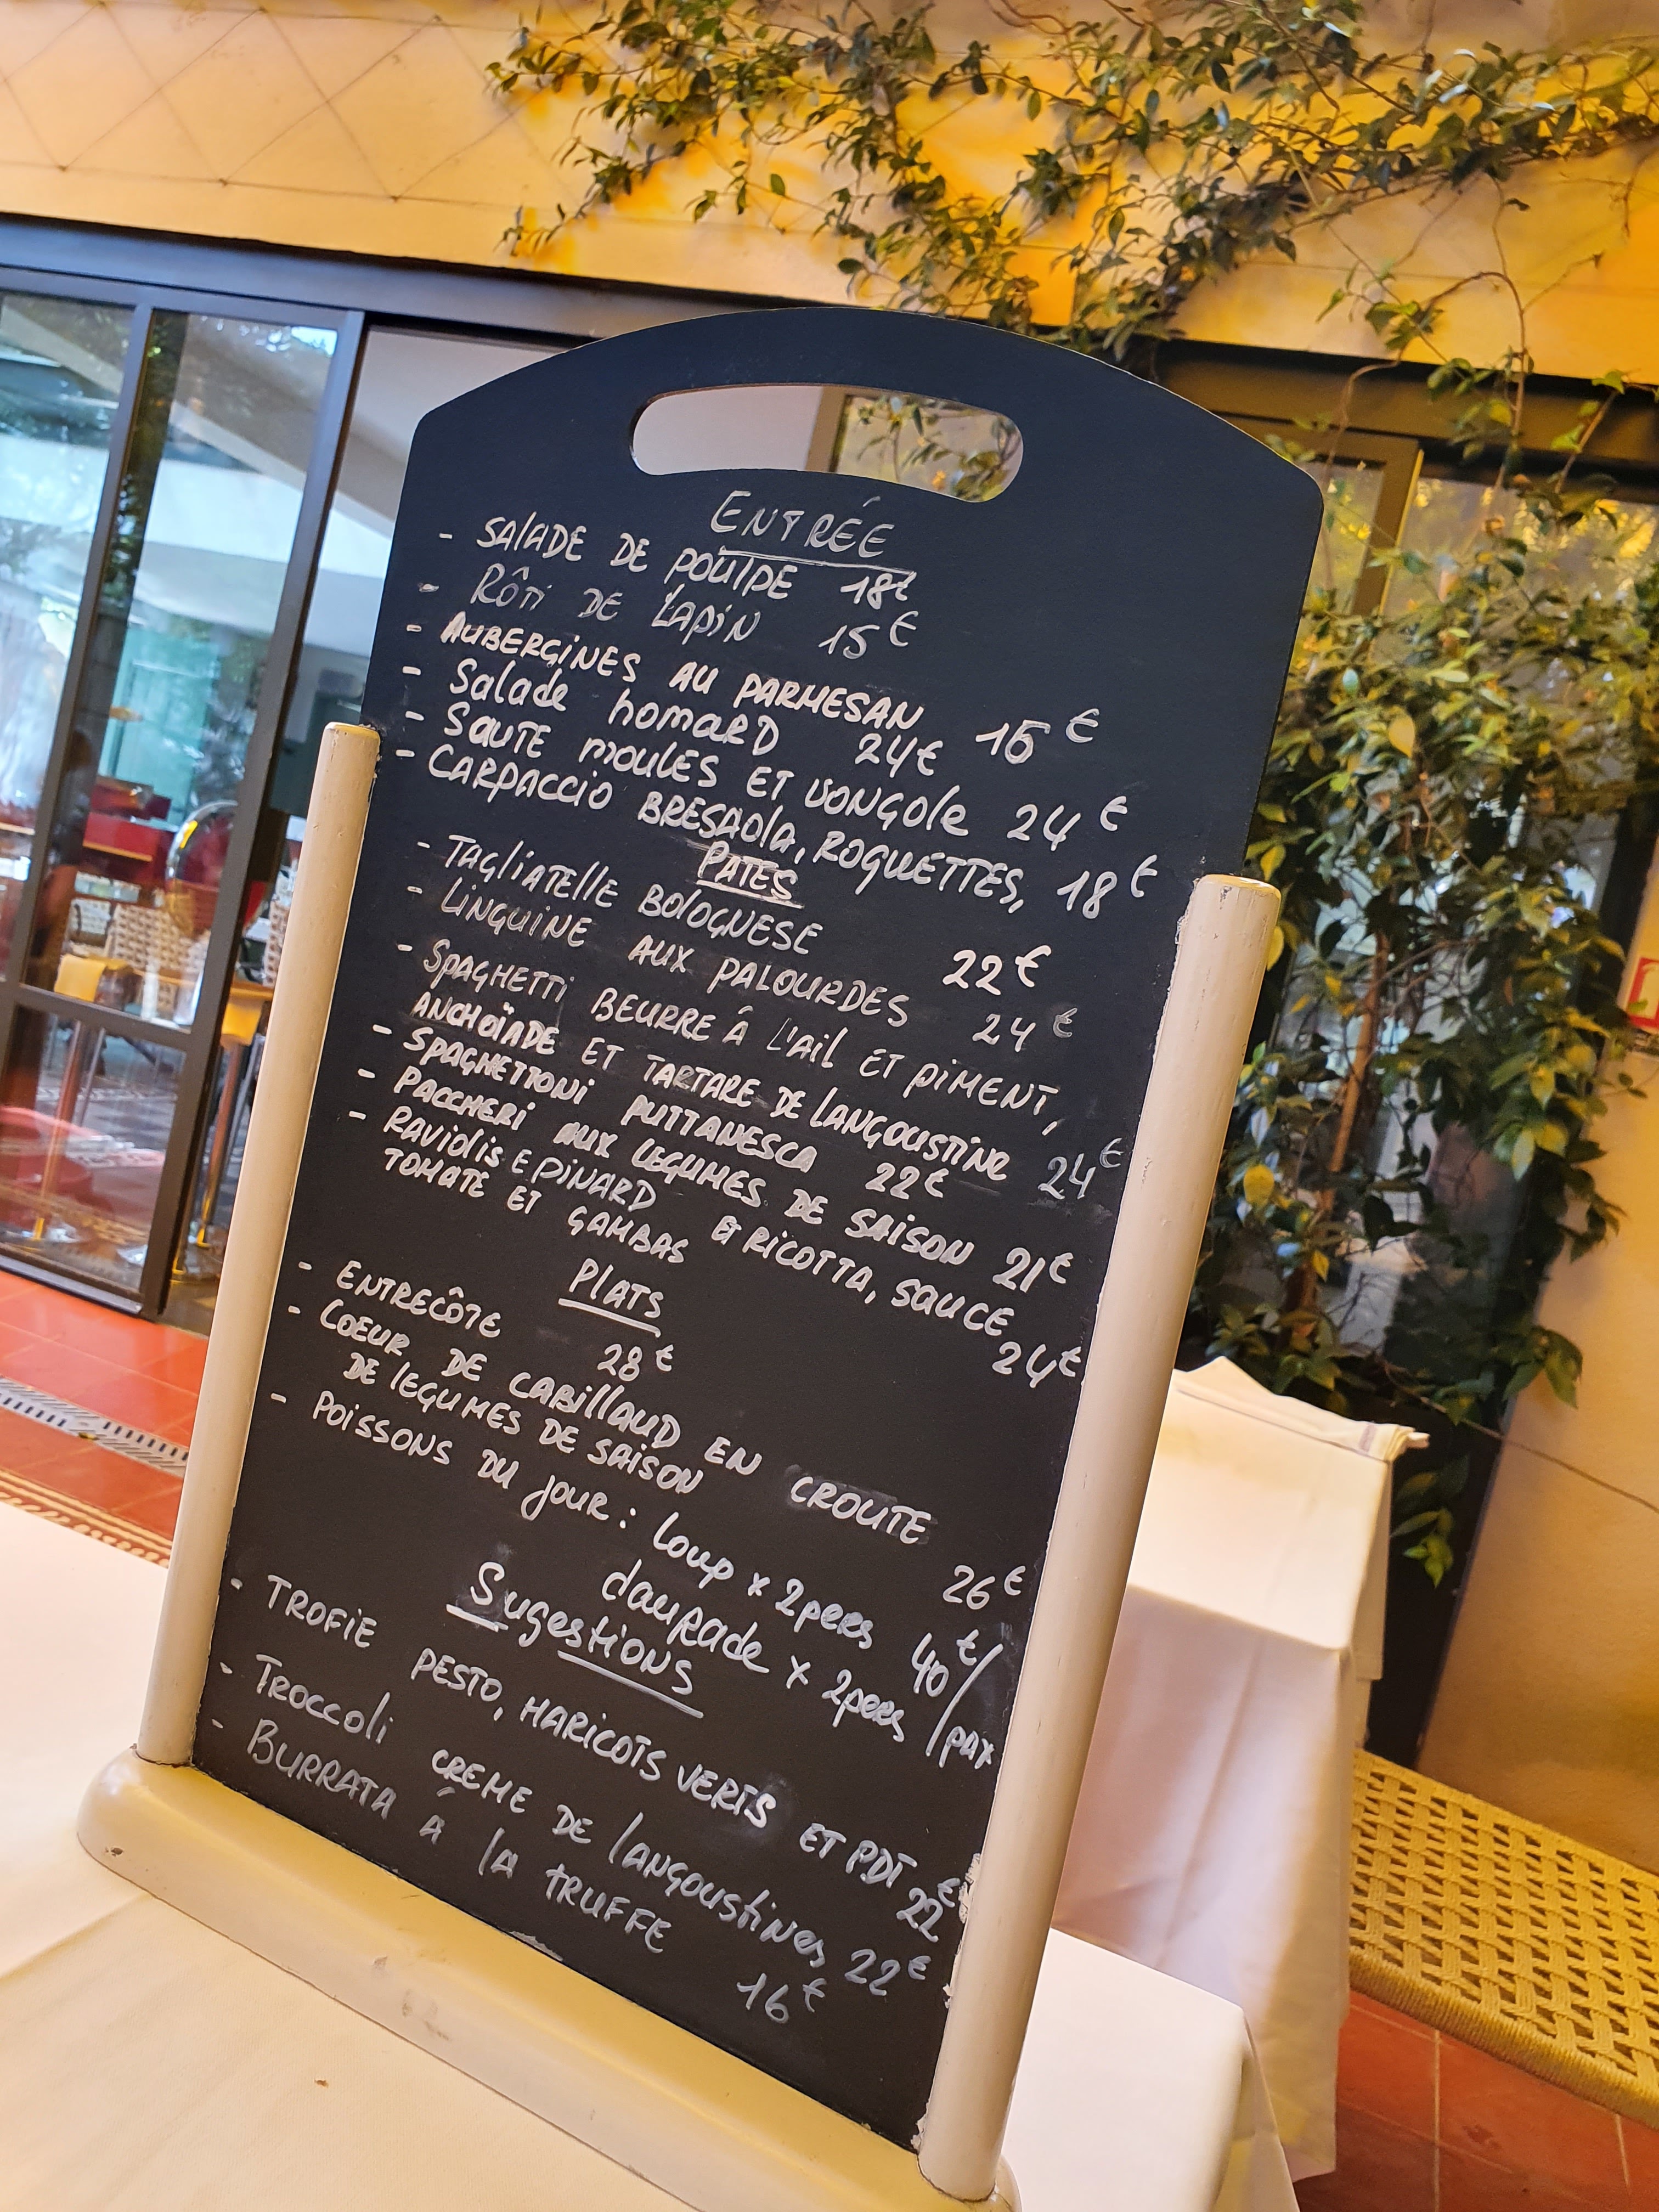 ENTRÉE
- SALADE DE POULPE 18€
- RÔTI DE LAPIN 15€
- AUBERGINES AU PARMESAN 15€
- Salade homARD 24€
- SAUTE MOULES ET VONGOLE 24€
- CARPACCIO BRESAOLA, ROQUETTES, 18€
PATES
- TAGLIATELLE BOLOGNESE 22€
- LINGUINE AUX PALOURDES 24€
- SPAGHETTI BEURRE Á L'AIL ET PIMENT,
ANCHOÏADE ET TARTARE DE LANGOUSTINE 24€
- SPAGHETTONI PUTTANESCA 22€
- PACCHERI AUX LEGUMES DE SAISON 21€
- RAVIOLIS EPINARD ET RICOTTA, SAUCE
TOMATE ET GAMBAS 24€
PLATS
- ENTRECÔTE 28€
- COEUR DE CABILLAUD EN CROUTE
DE LEGUMES DE SAISON 26€
- POISSONS DU JOUR : Loup x 2pers 40€/
daurade x 2pers /pax
SugestIONS
- TROFIE PESTO, HARICOTS VERTS ET PDT 22€
- TROCCOLI CREME DE LANGOUSTINES 22€
- BURRATA Á LA TRUFFE 16€